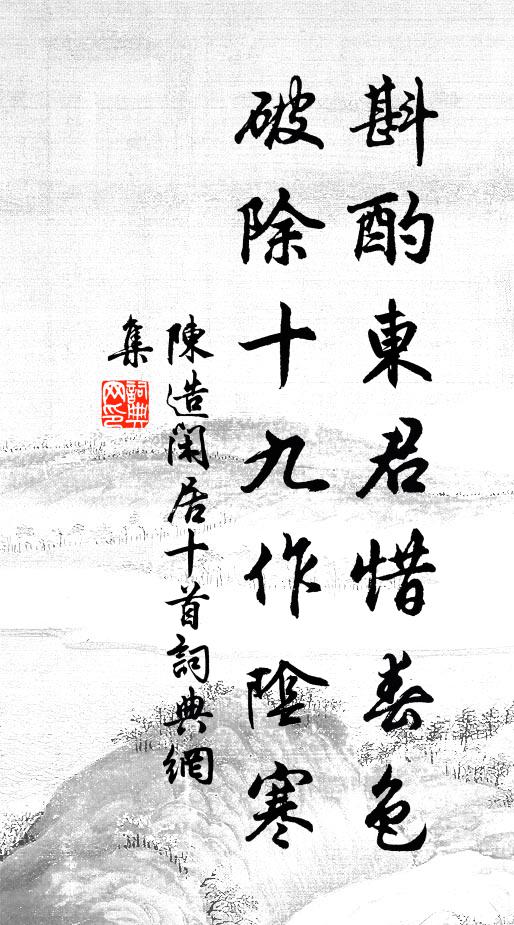 斟酌東君惜春色
破除十九作陰寒
陳造閑居十首詞典網
集
詞典網印